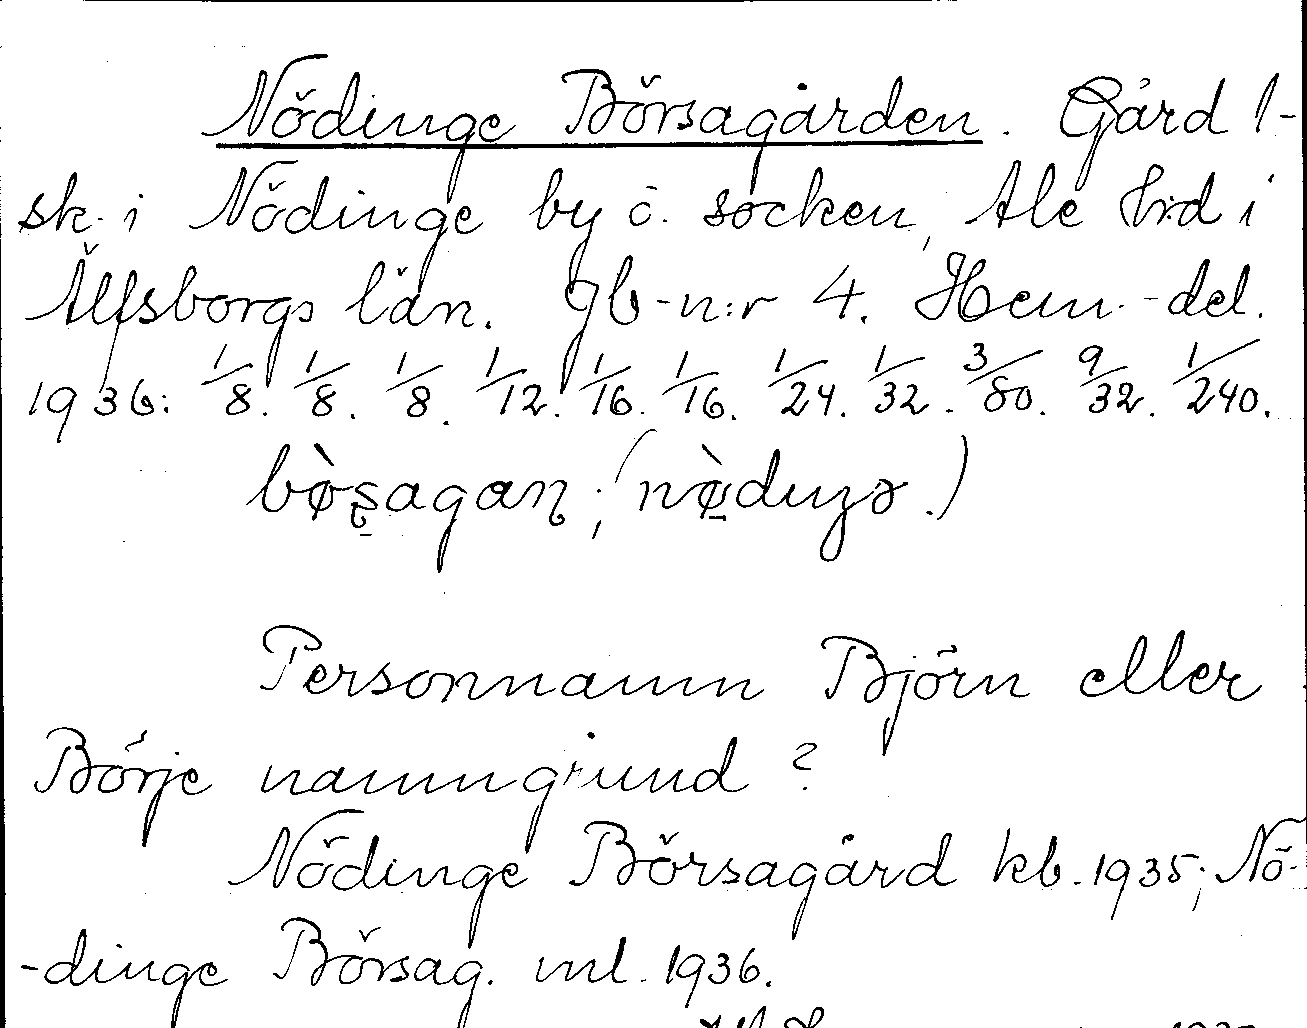 Nödinge Börsagården. Gård l-
sk. i Nödinge by o. socken, Ale hrd i
Älfsborgs län. Jb-n:r 4. Hem.-del.
1936: 1/8. 1/8. 1/8. 1/12. 1/16. 1/16. 1/24. 1/32. 3/80. 9/32. 1/240.
bø̀ʂagaɳ; (nø̀duŋə.)
Personnamn Björn eller
Börje namngrund?
Nödinge Börsagård kb. 1935; Nö-
-dinge Börsag. ml. 1936.